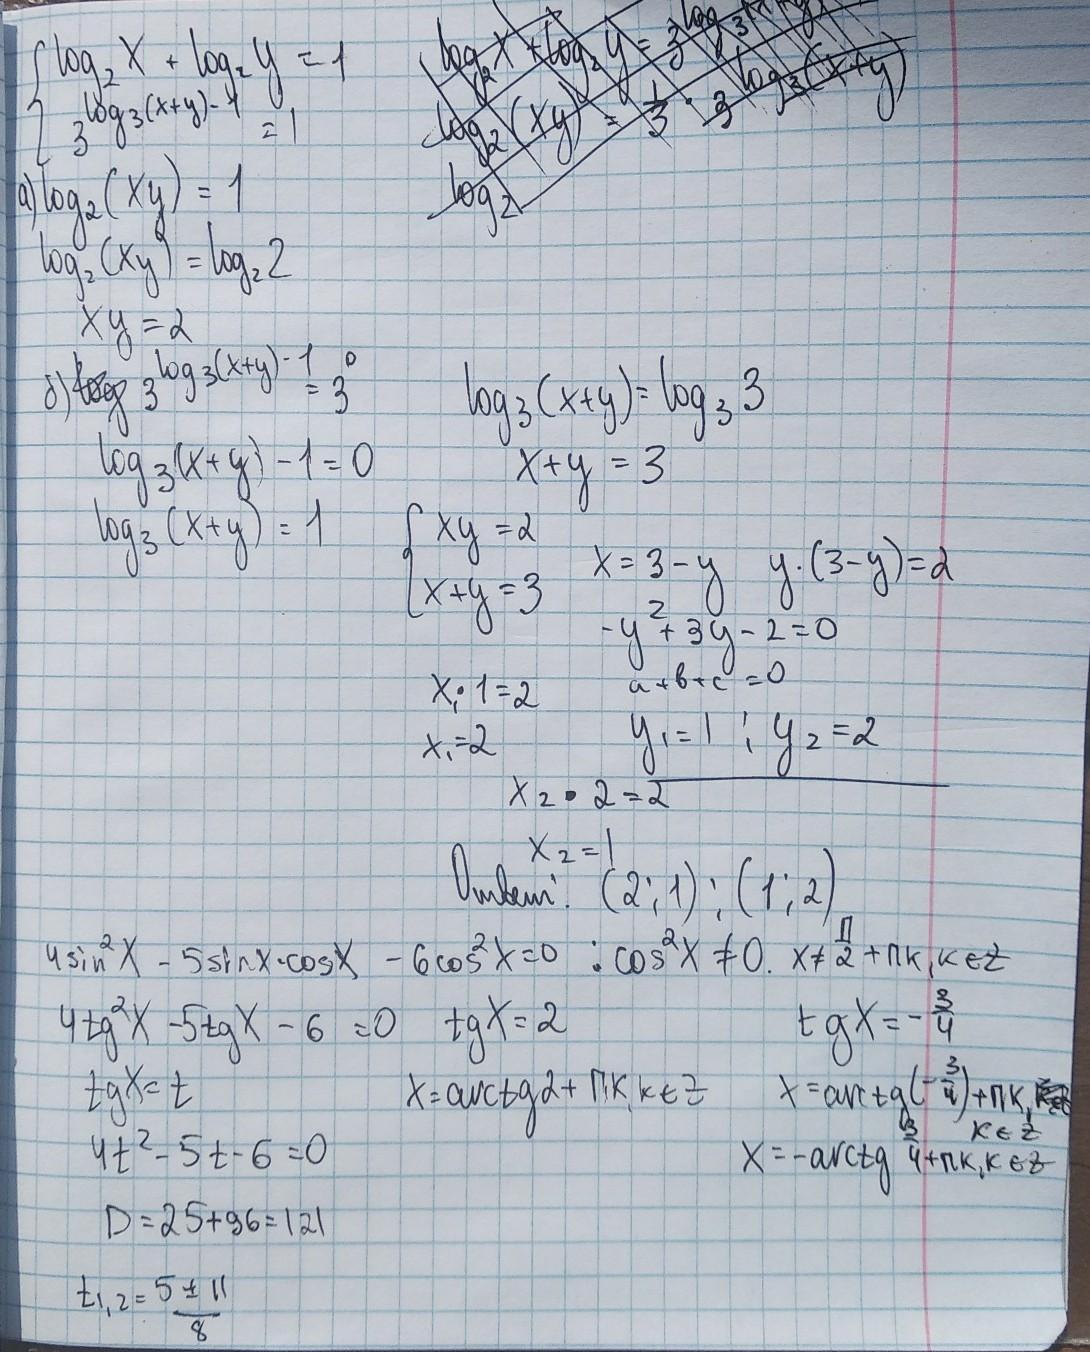 { log₂X + log₂y = 1
3^(log₃(x+y)-1) = 1
log₂X + log₂y = 3^(log₃(x+y))
log₂(xy) = 1/3 · 3^(log₃(x+y))
log₂
a) log₂(Xy) = 1
log₂(Xy) = log₂2
Xy = 2
б) log 3^(log₃(x+y)-1) = 3⁰
log₃(x+y) - 1 = 0
log₃(x+y) = 1
log₃(x+y) = log₃3
x+y = 3
{ xy = 2
x+y = 3
x = 3-y y·(3-y) = 2
-y² + 3y - 2 = 0
a+b+c = 0
y₁ = 1 ; y₂ = 2
x₁·1 = 2
x₁ = 2
x₂ · 2 = 2
x₂ = 1
Ответ: (2;1); (1;2)
4sin²X - 5sinx·cosx - 6cos²X = 0 : cos²X ≠ 0. x ≠ П/2 + Пk, k∈Z
4tg²X - 5tgX - 6 = 0
tgX = t
4t² - 5t - 6 = 0
D = 25+96 = 121
t₁,₂ = (5 ± 11)/8
tgX = 2
X = arctg2 + Пk, k∈Z
tgX = -3/4
X = arctg(-3/4) + Пk,
k∈Z
X = -arctg 3/4 + Пk, k∈Z